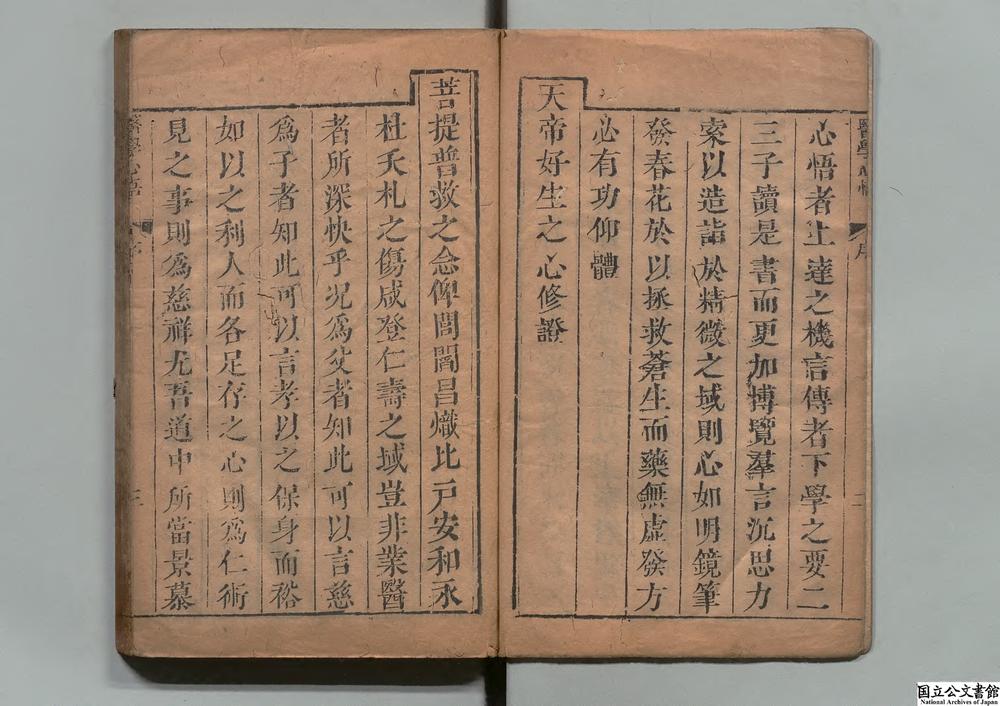 心悟者上達之機言傳者下學之要二
三子讀是書而更加博覽羣言沉思力
索以造詣於精微之域則心如明鏡筆
發春花於以拯救蒼生而藥無虛發方
必有功仰體
天帝好生之心修證
菩提普救之念俾閭閻昌熾比戶安和永
杜夭札之傷咸登仁壽之域豈非業醫
者所深快乎況為父者知此可以言慈
為子者知此可以言孝以之保身而裕
如以之利人而各足存之心則為仁術
見之事則為慈祥尤吾道中所當景慕
醫學心悟
序
二
醫學心悟
序
三
国立公文書館
National Archives of Japan